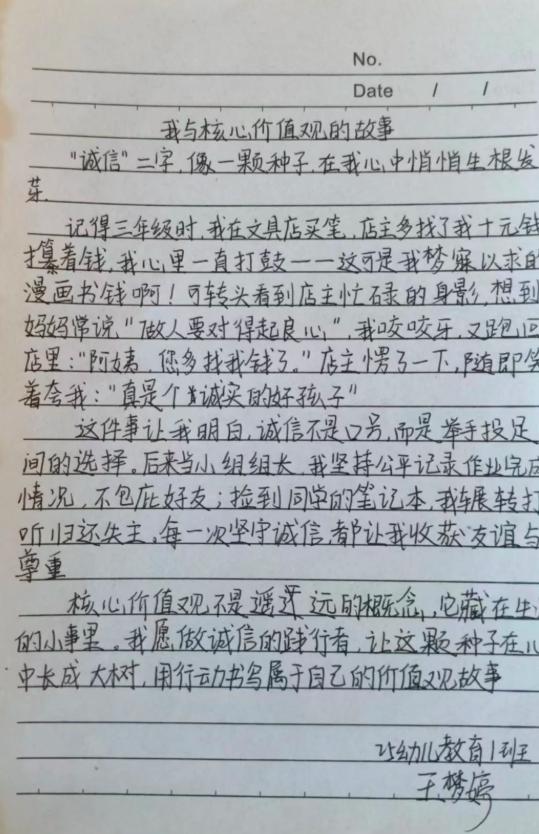 No.
Date / /
我与核心价值观的故事
"诚信"二字,像一颗种子,在我心中悄悄生根发
芽.
记得三年级时,我在文具店买笔,店主多找了我十元钱
攥着钱,我心里一直打鼓——这可是我梦寐以求的
漫画书钱啊!可转头看到店主忙碌的身影,想到
妈妈常说"做人要对得起良心",我咬咬牙,又跑回
店里:"阿姨,您多找我钱了。"店主愣了一下,随即笑
着夸我:"真是个诚实的好孩子"
这件事让我明白,诚信不是口号,而是举手投足
间的选择。后来当小组组长,我坚持公平记录作业完成
情况,不包庇好友;捡到同学的笔记本,我辗转打
听归还失主。每一次坚守诚信,都让我收获友谊与
尊重
核心价值观不是遥远的概念,它藏在生
的小事里。我愿做诚信的践行者,让这颗种子在心
中长成大树,用行动书写属于自己的价值观故事
25幼儿教育1班
王梦婷